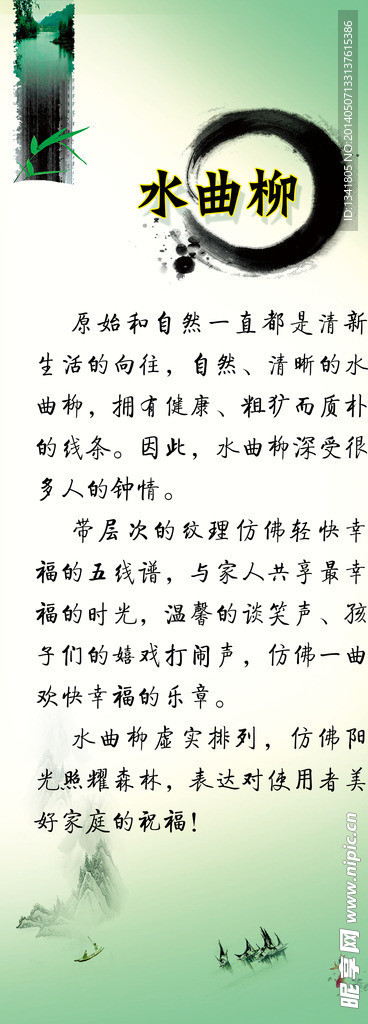 水曲柳
原始和自然一直都是清新
生活的向往，自然、清晰的水
曲柳，拥有健康、粗犷而质朴
的线条。因此，水曲柳深受很
多人的钟情。
带层次的纹理仿佛轻快幸
福的五线谱，与家人共享最幸
福的时光，温馨的谈笑声、孩
子们的嬉戏打闹声，仿佛一曲
欢快幸福的乐章。
水曲柳虚实排列，仿佛阳
光照耀森林，表达对使用者美
好家庭的祝福！
ID:1341805 NO:20140507133137615386
昵享网 www.nipic.cn